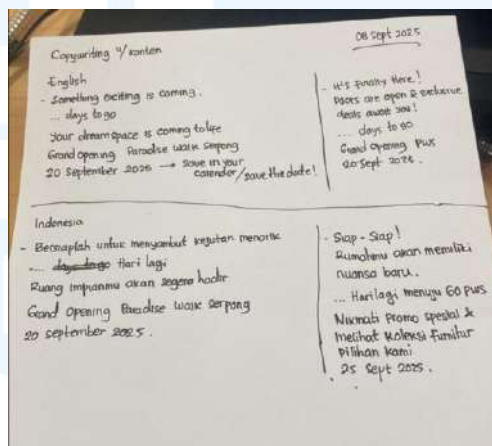 08 Sept 2025
Copywriting u/ konten
English
- Something exciting is coming.
... days to go
Your dream space is coming to life
Grand Opening Paradise Walk Serpong
20 September 2025 → Save in your calender/save the date!
- It's Finally Here!
Doors are open & exclusive
deals await you!
... days to go
Grand Opening PWS
20 Sept 2025.
Indonesia
- Bersiaplah untuk menyambut kejutan menarik
.... days to go Hari lagi
Ruang impianmu akan segera hadir
Grand Opening Paradise Walk Serpong
20 September 2025.
- Siap - Siap!
Rumahmu akan memiliki
nuansa baru.
... Hari lagi menuju GO PWS
Nikmati Promo spesial &
melihat koleksi furnitur
pilihan kami
25 Sept 2025.